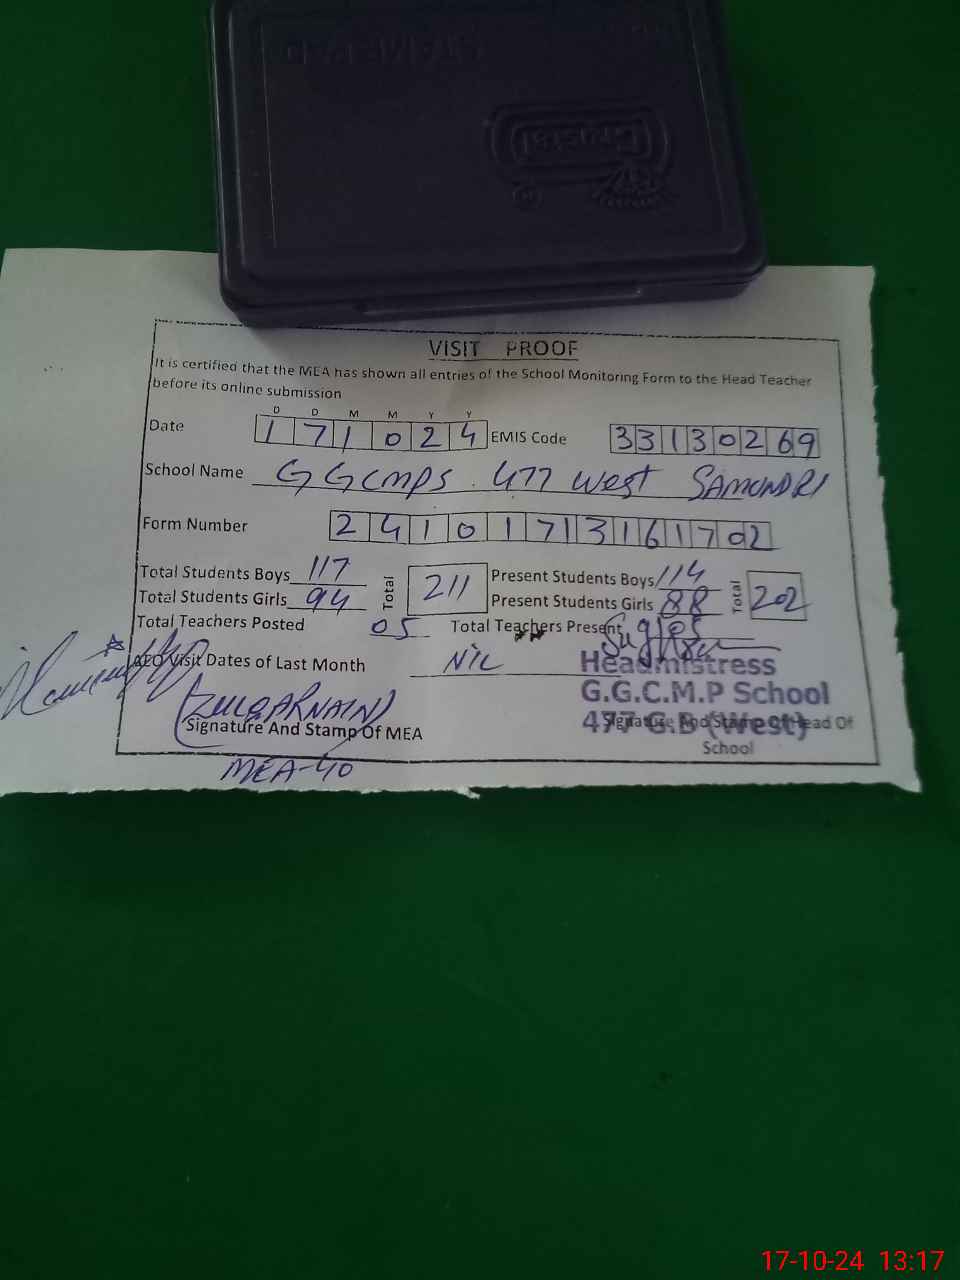 Crystal
VISIT PROOF
It is certified that the MEA has shown all entries of the School Monitoring Form to the Head Teacher
before its online submission
D D M M Y Y
Date 1 7 1 0 2 4 EMIS Code 3 3 1 3 0 2 6 9
School Name GGCMPS 477 West SAMUNDRI
Form Number 2 4 1 0 1 7 1 3 1 6 1 7 02
Total Students Boys 117 Total 211 Present Students Boys 114 Total 202
Total Students Girls 94 Present Students Girls 88
Total Teachers Posted 05 Total Teachers Present 05
AEO Visit Dates of Last Month NIL
Headmistress
G.G.C.M.P School
477 G.B (West)
ZULQARNAIN
Signature And Stamp Of MEA
Signature And Stamp Of Head Of
School
MEA-40
17-10-24 13:17